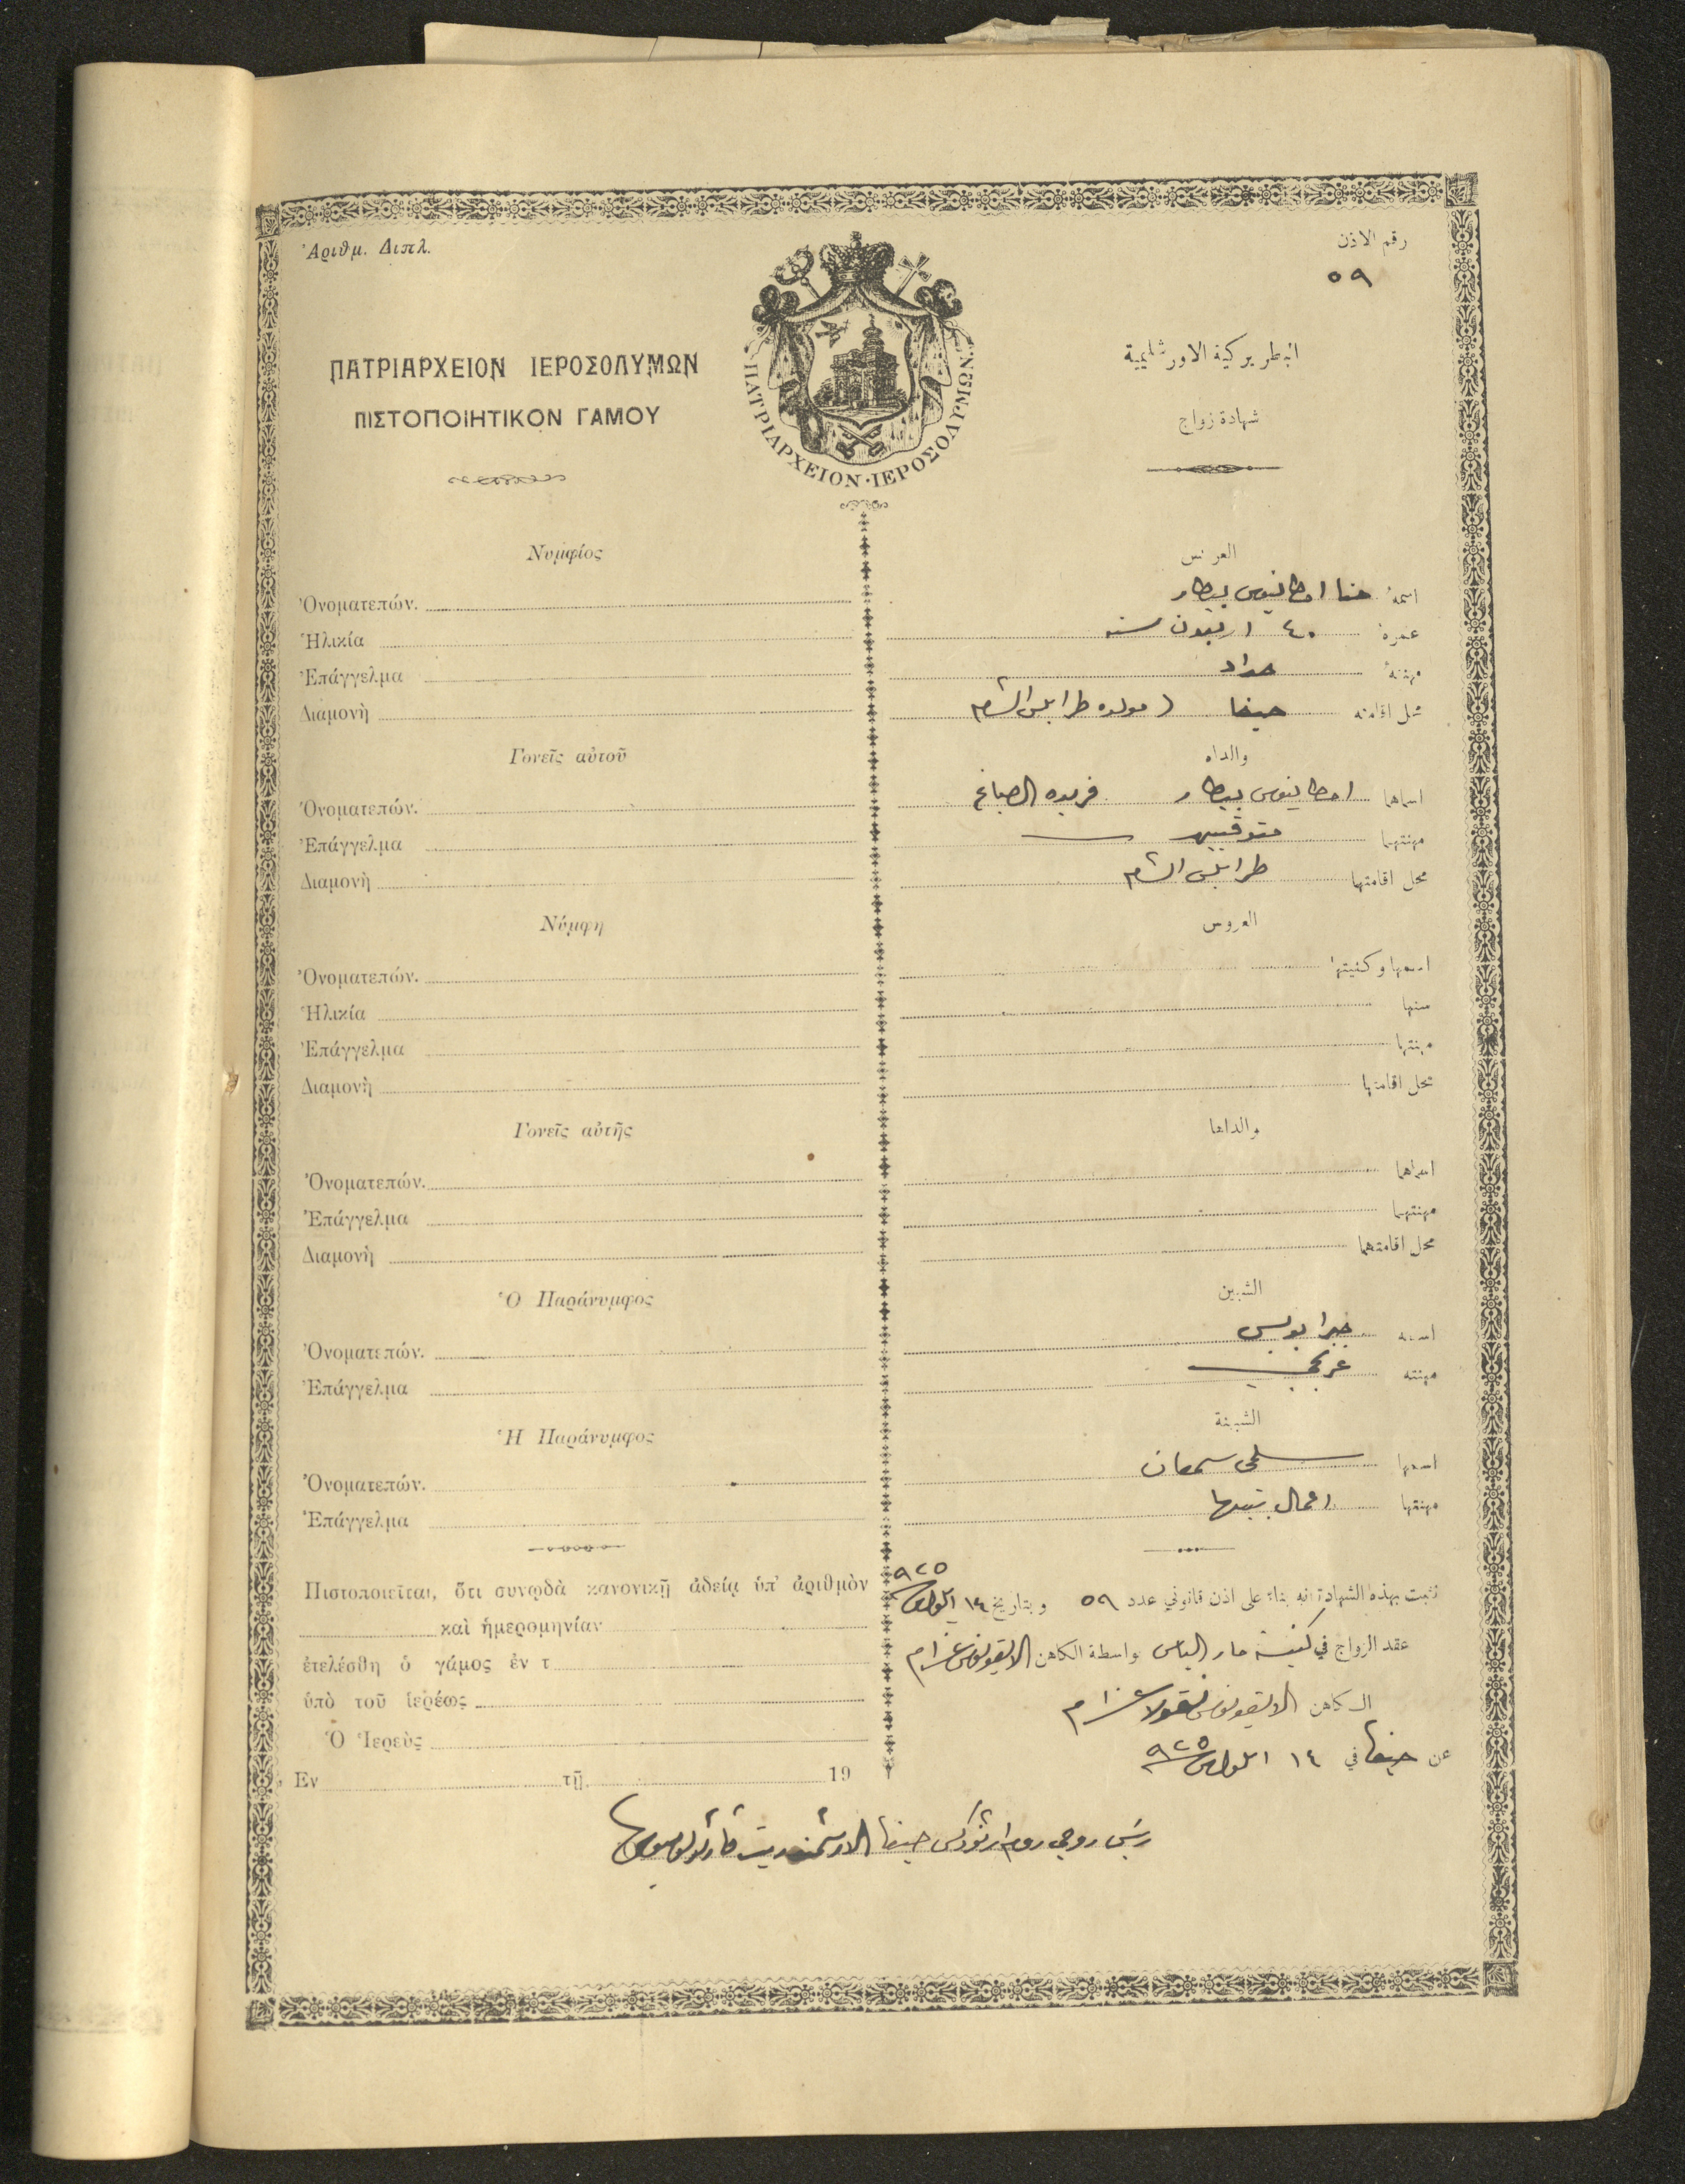 Ἀριθμ. Διπλ.
رقم الاذن
٥٩
ΠΑΤΡΙΑΡΧΕΙΟΝ ΙΕΡΟΣΟΛΥΜΩΝ
ΠΙΣΤΟΠΟΙΗΤΙΚΟΝ ΓΑΜΟΥ
ΠΑΤΡΙΑΡΧΕΙΟΝ · ΙΕΡΟΣΟΛΥΜΩΝ
البطريركية الاورشليمية
شهادة زواج
Νυμφίος
Ὀνοματεπών.
Ἡλικία
Ἐπάγγελμα
Διαμονὴ
Γονεῖς αὐτοῦ
Ὀνοματεπών.
Ἐπάγγελμα
Διαμονὴ
Νύμφη
Ὀνοματεπών.
Ἡλικία
Ἐπάγγελμα
Διαμονὴ
Γονεῖς αὐτῆς
Ὀνοματεπών.
Ἐπάγγελμα
Διαμονὴ
Ὁ Παράνυμφος
Ὀνοματεπών.
Ἐπάγγελμα
Ἡ Παράνυμφος
Ὀνοματεπών.
Ἐπάγγελμα
Πιστοποιεῖται, ὅτι συνῳδὰ κανονικῇ ἀδείᾳ ὑπ' ἀριθμὸν
καὶ ἡμερομηνίαν
ἐτελέσθη ὁ γάμος ἐν τ
ὑπὸ τοῦ ἱερέως
Ὁ Ἱερεὺς
Ἐν τῇ 19
العريس
اسمه حنا انطانيوس بيطار
عمره ٤٠ اربعون سنه
مهنته حداد
محل اقامته حيفا (مولده طرابلس الشام
والداه
اسماهما انطانيوس بيطار فريده الصباغ
مهنتهما متوفيين
محل اقامتهما طرابلس الشام
العروس
اسمها وكنيتها
سنها
مهنتها
محل اقامتها
والداها
اسماهما
مهنتهما
محل اقامتهما
الشبين
اسمه جبرا بولس
مهنته عربجي
الشبينة
اسمها سلمى سمعان
مهنتها اعمال بيتها
نثبت بهذه الشهادة انه بناء على اذن قانوني عدد ٥٩ وبتاريخ ١٤ ايلول ٩٢٥
عقد الزواج في كنيسة مار الياس بواسطة الكاهن الايقونومس
الكاهن الايقونومس نقولا
عن حيفا في ١٤ ايلول ٩٢٥
رئيس روحي روم ارثوذكس حيفا الارشمندريت